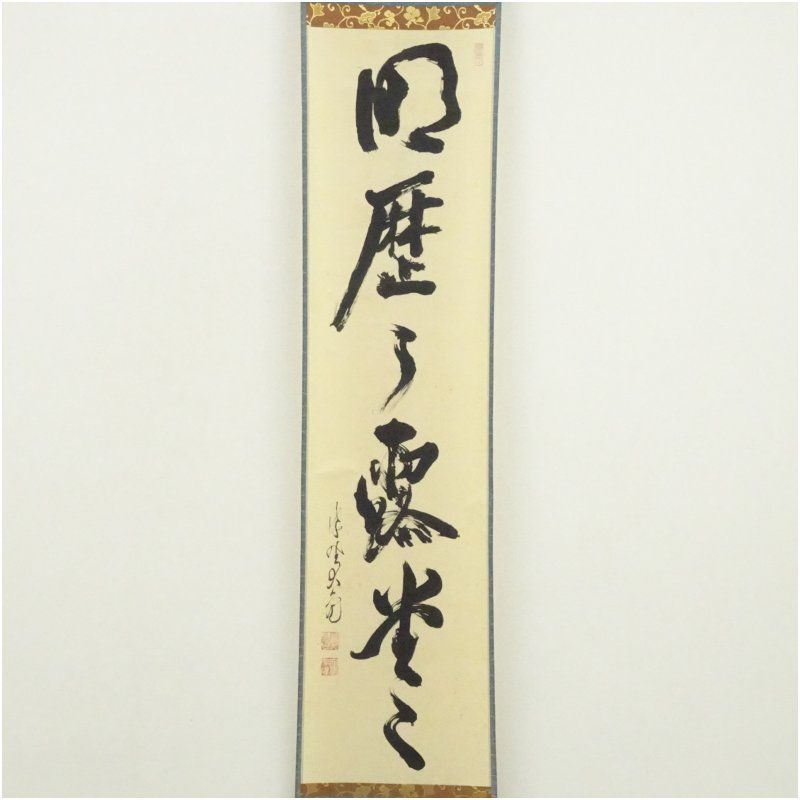 明歴々露堂々